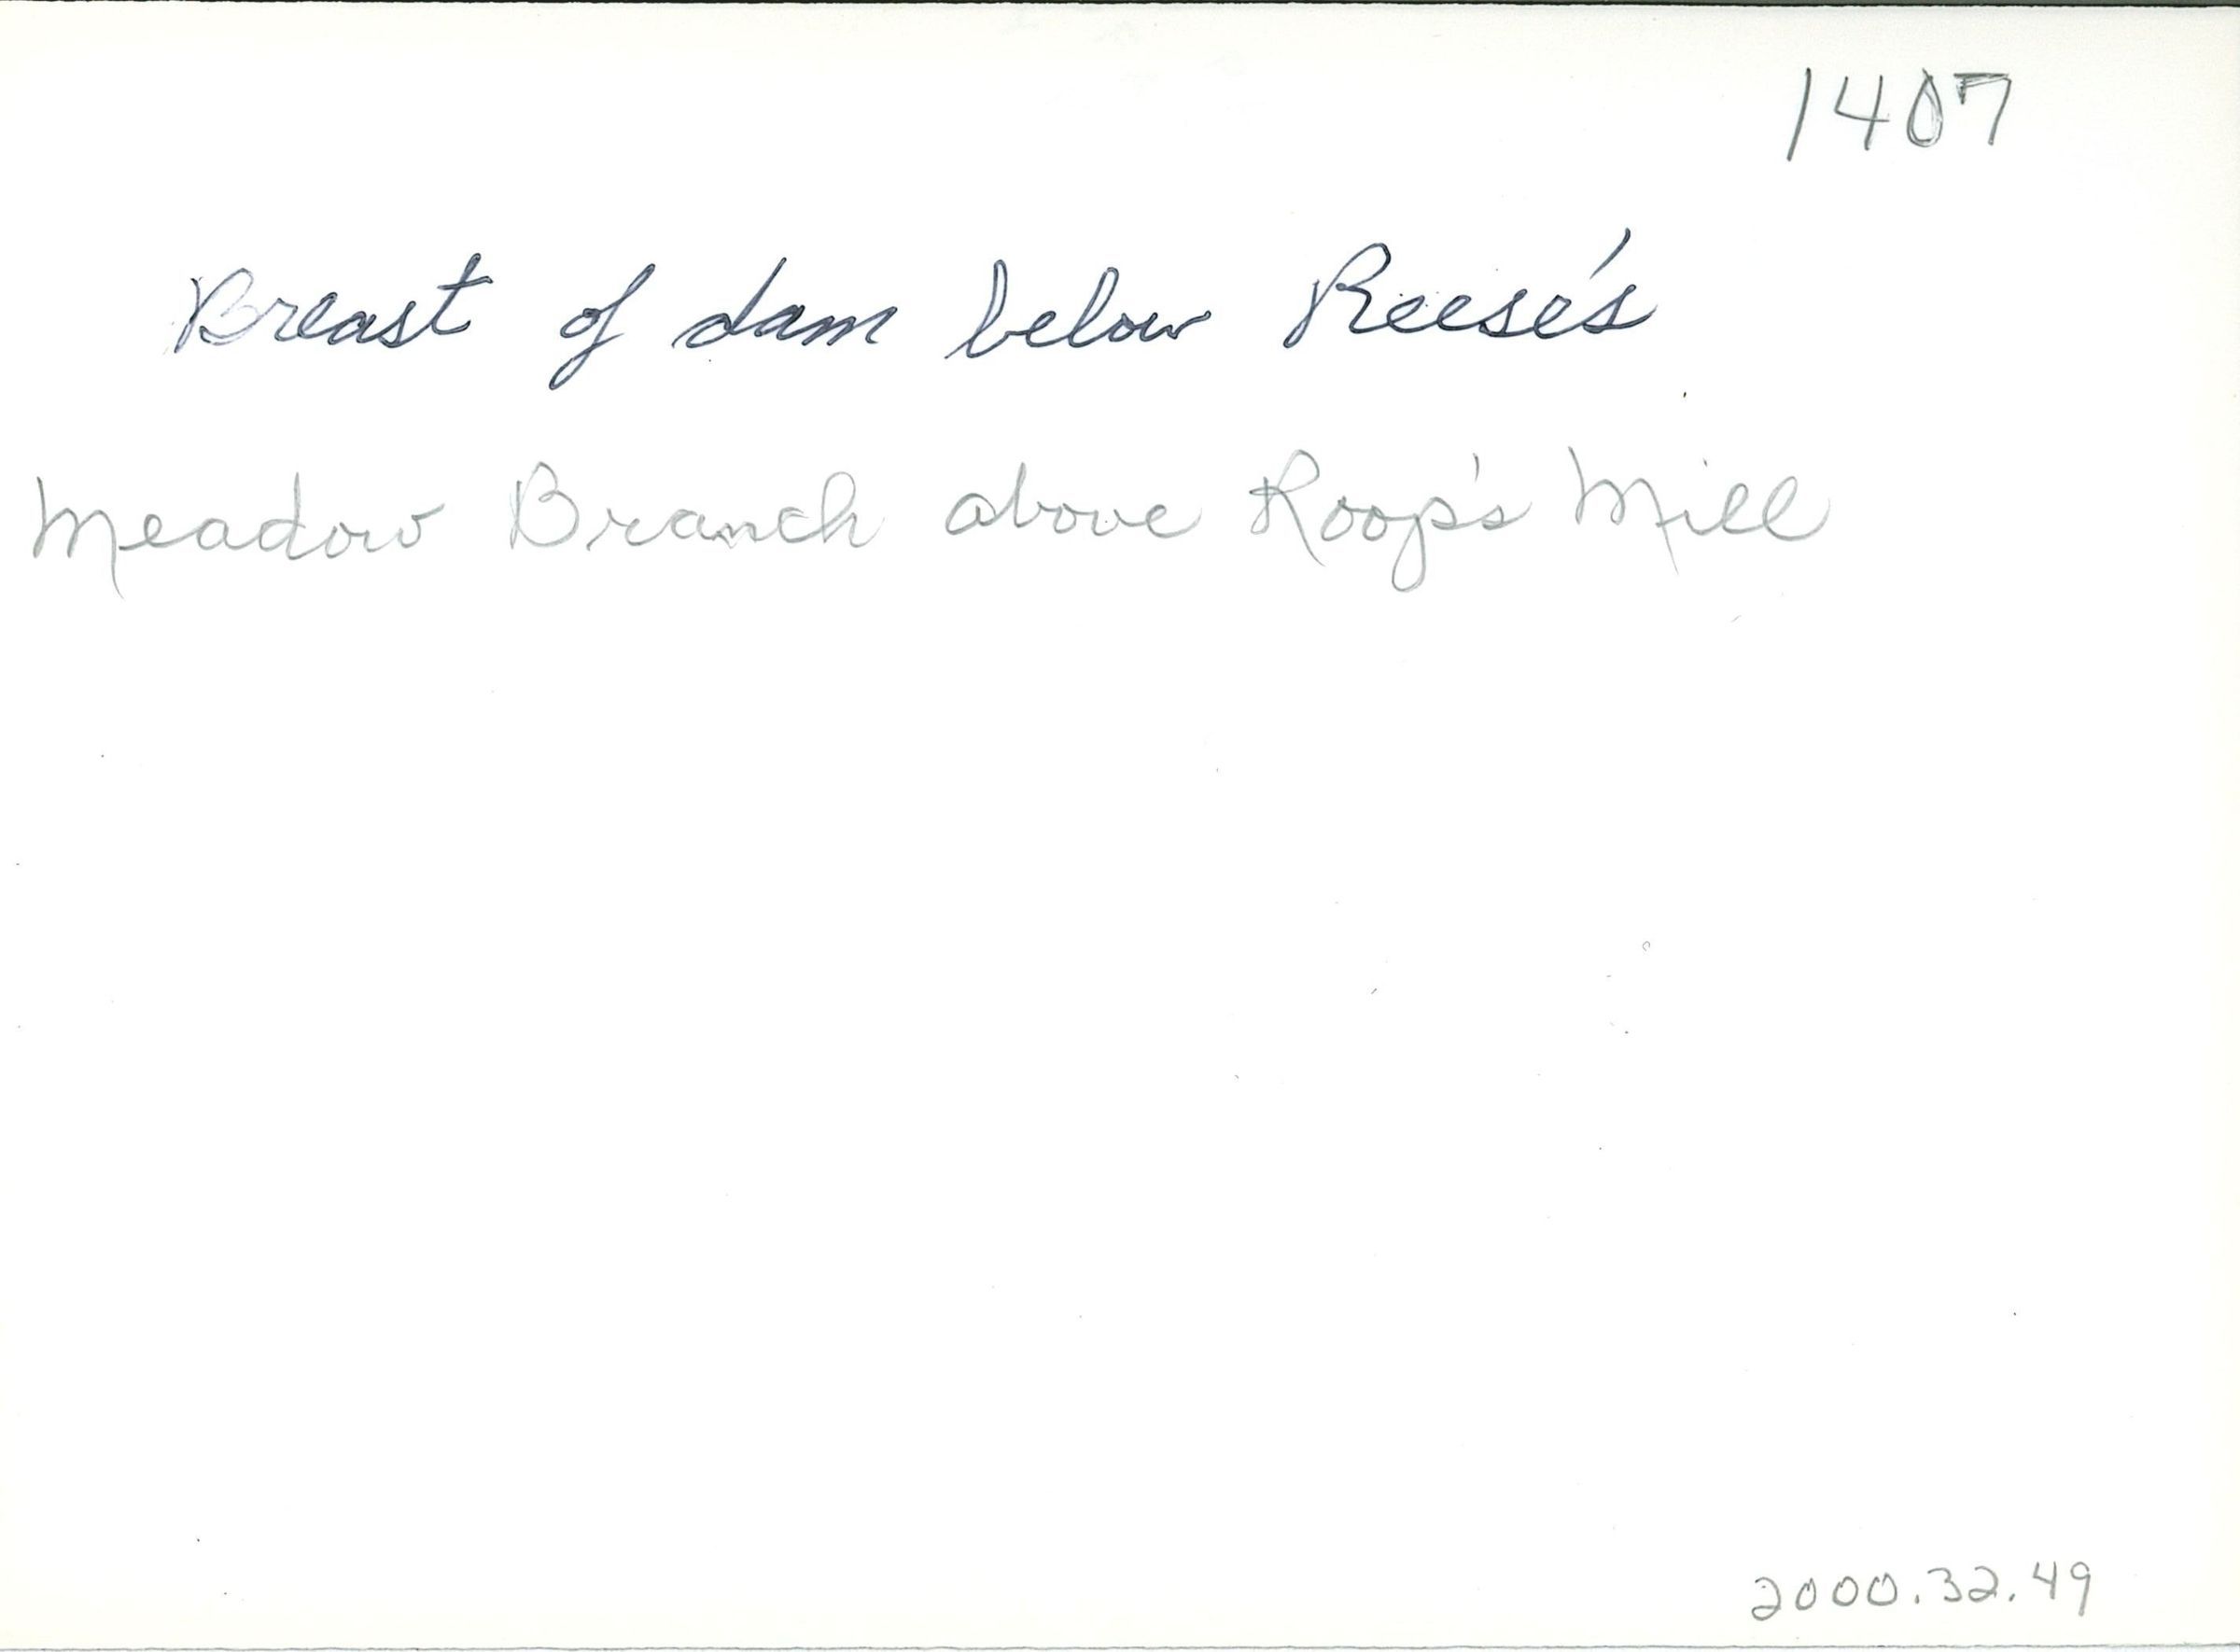 1407
Breast of dam below Reese's
Meadow Branch above Roop's Mill
2000.32.49